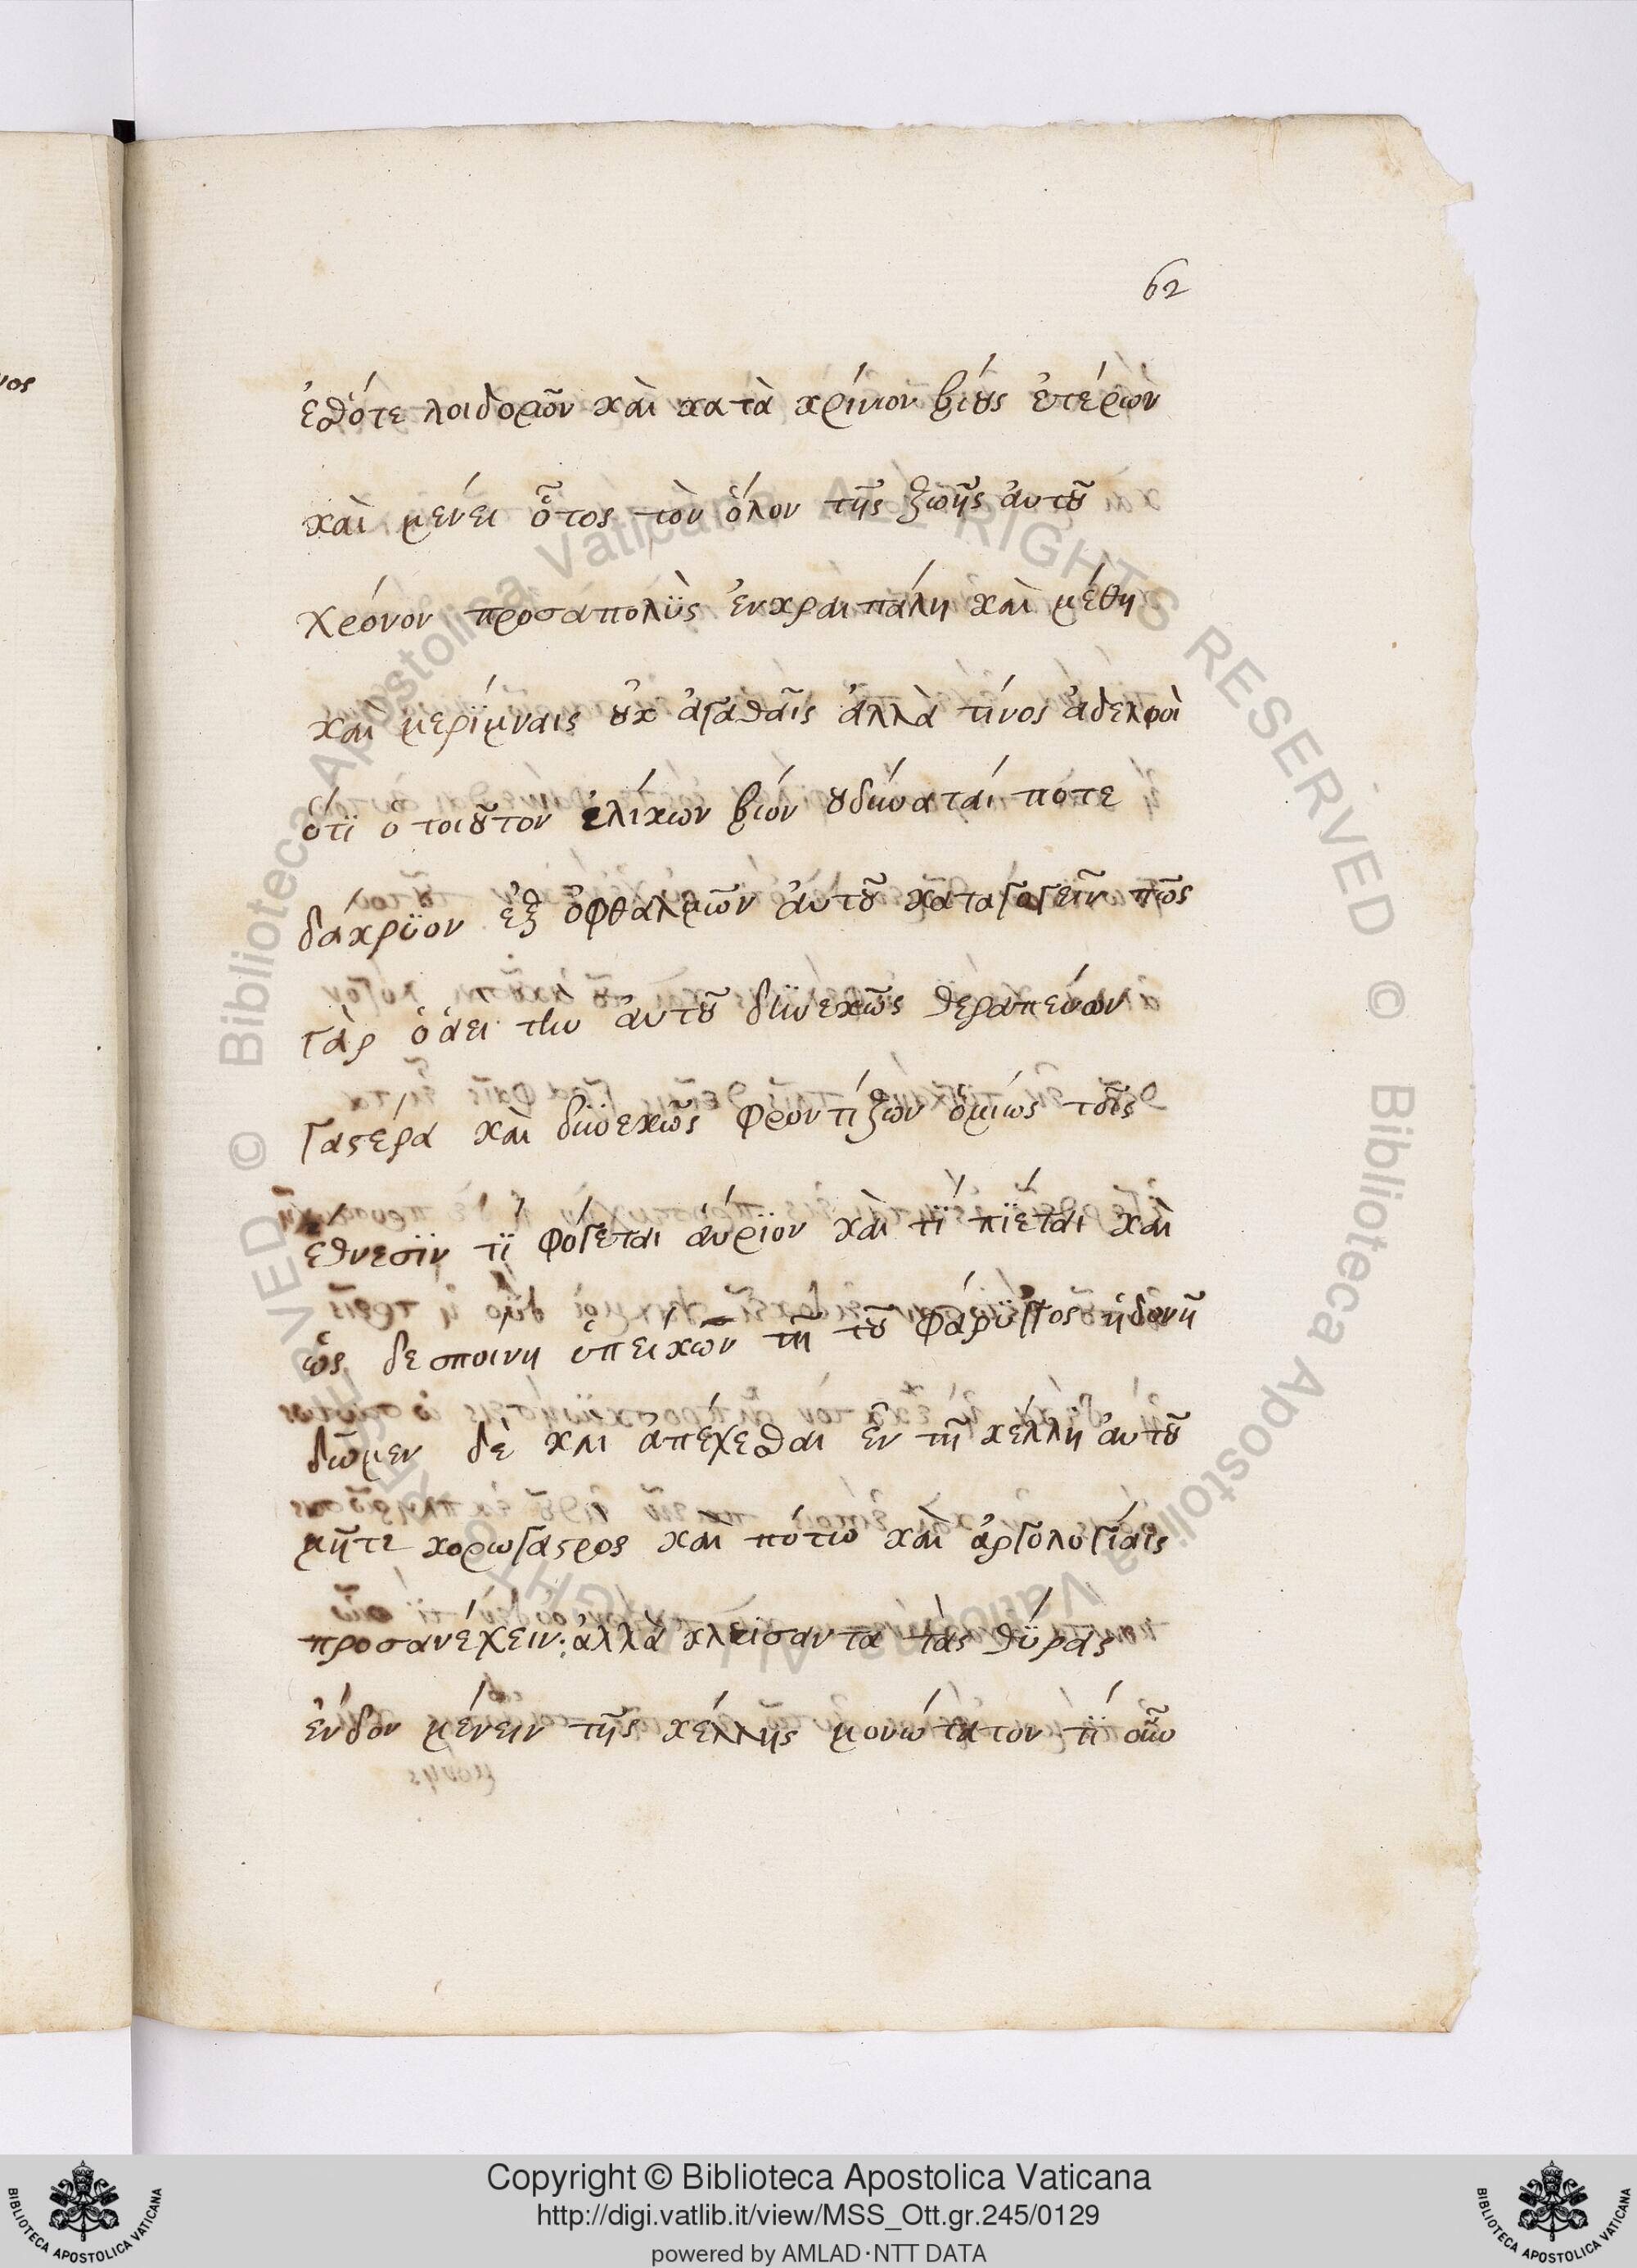 62
ἐσθότε λοιδορῶν καὶ κατὰ κρίνιον βίους ἑτέρων
καὶ μένει οὗτος τὸν ὅλον τῆς ζωῆς αὐτοῦ
χρόνον προσαπολὺς ἐνκραιπάλη καὶ μέθη
καὶ μερΐμναις οὐκ ἀγαθαῖς ἀλλὰ τίνος ἀδελφοὶ
ότϊ ὁ τοιοῦτον ἑλίκων βίον οὐδύναταί ποτε
δάκρϋον ἐξ ὀφθαλμῶν αὐτοῦ καταγαγεῖν πῶς
γὰρ ὁ ἀεὶ τὴν αὐτοῦ διηνεκῶς θεραπεύων
γαστέρα καὶ διηνεκῶς φροντίζων ὁμίως τοῖς
ἔθνεσϊν τΐ φάγεται αὔρϊον καὶ τΐ πΐεται καὶ
ὡς δεσποινη ὑπείκων τῆ τοῦ φάρϋγγος ἡδονῆ
δῶμεν δὲ καὶ ἀπέχεσθαι ἐν τῆ κέλλη αὐτοῦ
μῆτε κορωγαστρος καὶ πότω καὶ ἀργολογίαις
προσανέχειν: ἀλλὰ κλείσαντα τὰς θΰρας
ἔνδον μένειν τῆς κέλλης μονώτατον τΐ οὖν
Copyright © Biblioteca Apostolica Vaticana
http://digi.vatlib.it/view/MSS_Ott.gr.245/0129
powered by AMLAD·NTT DATA
BIBLIOTECA APOSTOLICA VATICANA
BIBLIOTECA APOSTOLICA VATICANA